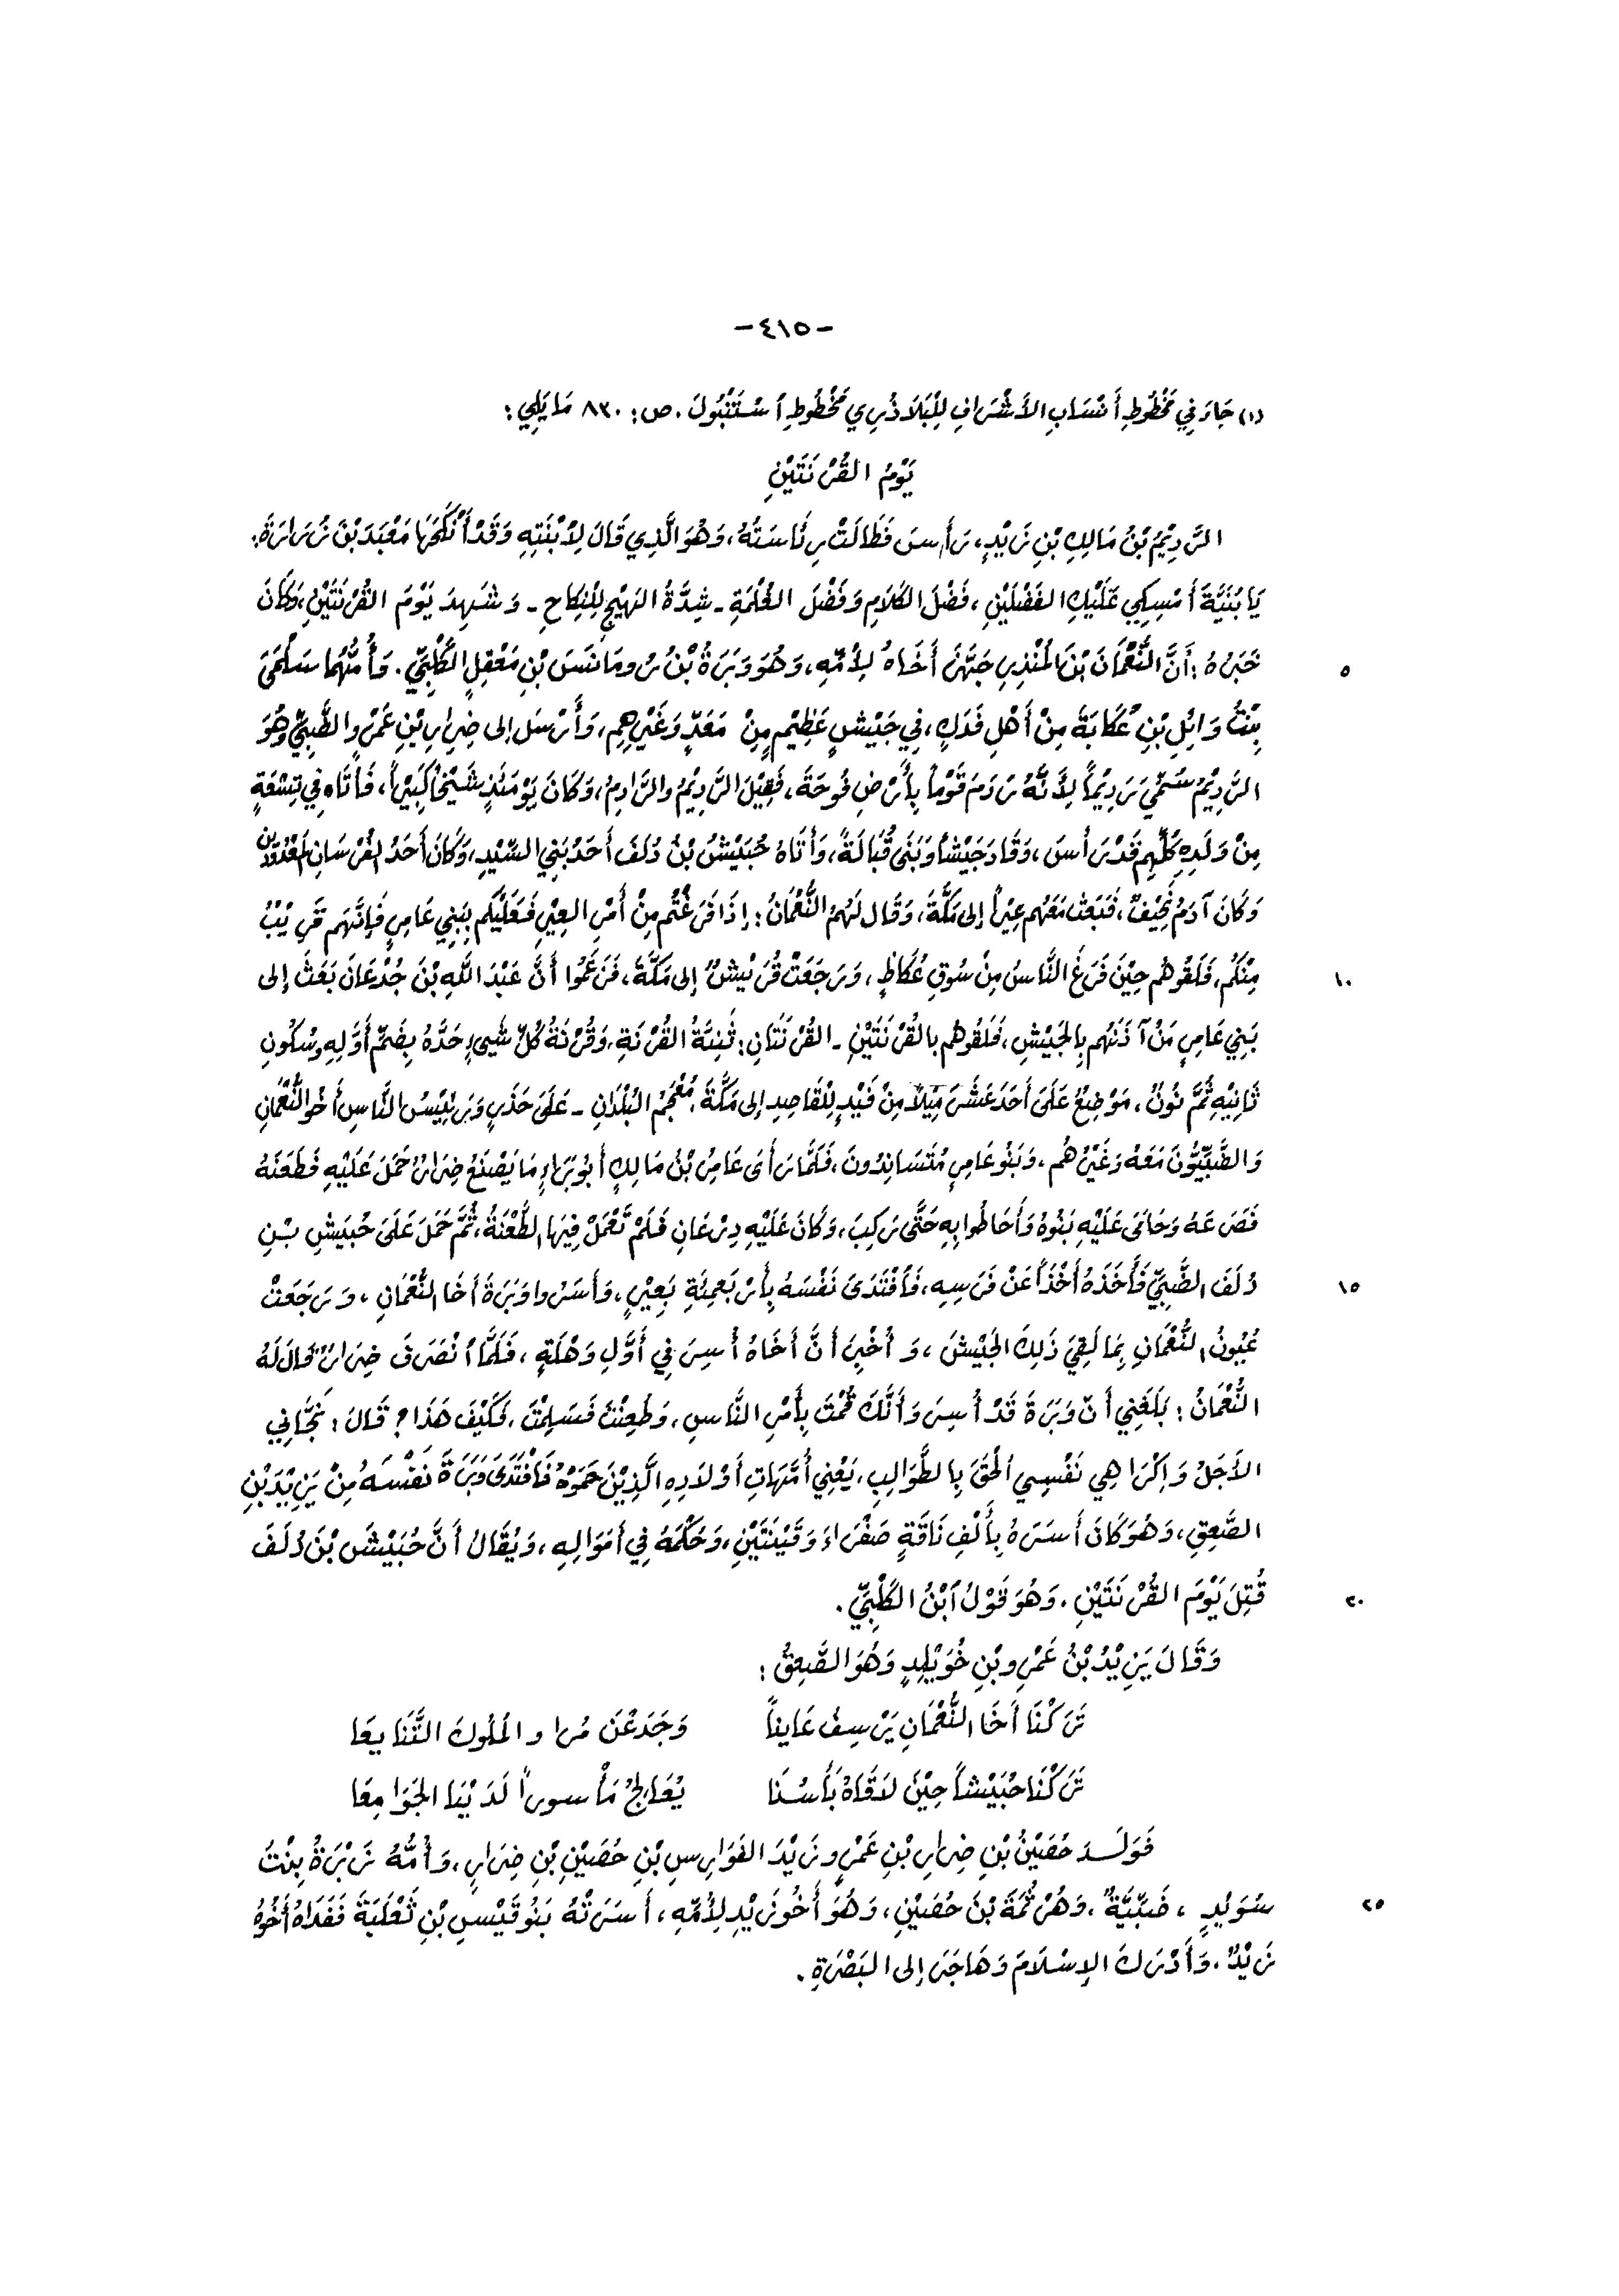 -٤١٥-
(١) جَاءَ فِي مَخْطُوطِ أَنْسَابِ الأَشْرَافِ لِلْبَلَاذُرِي مَخْطُوطِ ٱسْتَنْبُولَ. ص: ٨٣٠ مَا يَلِي:
يَوْمُ القُرْنَتَيْنِ
الرَّدِيْمُ بْنُ مَالِكِ بْنِ زَيْدٍ، رَأَسَ فَطَالَتْ رِئَاسَتُهُ، وَهُوَ الَّذِي قَالَ لِابْنَتِهِ وَقَدْ أَنْكَحَهَا مَعْبَدَ بْنَ زُرَارَةَ:
يَا بُنَيَّةَ أَمْسِكِي عَلَيْكِ الفَضْلَيْنِ، فَضْلَ الكَلَامِ وَفَضْلَ الغُلْمَةِ - شِدَّةُ الهَيْجِ لِلْنِكَاحِ - وَشَهِدَ يَوْمَ القُرْنَتَيْنِ، وَكَانَ
٥ خَبَرُهُ: أَنَّ النُّعْمَانَ بْنَ المُنْذِرِ جَهَّزَ أَخَاهُ لِأُمِّهِ، وَهُوَ وَبَرَةُ بْنُ رُومَانِسَ بْنِ مَعْقِلٍ الكَلْبِيِّ. وَأُمُّهُمَا سَلْمَى
بِنْتُ وَائِلِ بْنِ عُكَابَةَ مِنْ أَهْلِ فَدَكٍ، فِي جَيْشٍ عَظِيْمٍ مِنْ مَعَدٍّ وَغَيْرِهِم، وَأَرْسَلَ إلى ضِرَارِ بْنِ عَمْرٍو الضَّبِيِّ وَهُوَ
الرَّدِيْمُ سُمِّيَ رَدِيْماً لِأَنَّهُ رَدَمَ قَوْماً بِأَرْضِ فُوحَةَ، فَقِيْلَ الرَّدِيْمُ والرَّادِمُ، وَكَانَ يَوْمَئِذٍ شَيْخاً كَبِيْراً، فَأَتَاه فِي تِسْعَةٍ
مِنْ وَلَدِهِ كُلِّهِم قَدْ رَأَسَ، وَقَادَ جَيْشاً وَبَنَى قُبَالَةً، وَأَتَاهُ حُبَيْشُ بْنُ دُلَفَ أَحَدُ بَنِي السِّيْدِ، وَكَانَ أَحَدُ الفُرْسَانِ المَعْدُودِيْنَ
وَكَانَ آدَمُ نَحِيْفٌ، فَبَعَثَ مَعَهُم عِيْراً إلى مَكَّةَ، وَقَالَ لَهُمُ النُّعْمَانُ: إِذَا فَرَغْتُم مِنْ أَمْرِ العِيْرِ فَعَلَيْكُم بِبَنِي عَامِرٍ فَإِنَّهَم قَرِيْبٌ
١٠ مِنْكُم، فَلَقُوهُم حِيْنَ فَرَغَ النَّاسُ مِنْ سُوقِ عُكَاظٍ، وَرَجَعَتْ قُرَيْشٌ إلى مَكَّةَ، فَزَعَمُوا أَنَّ عَبْدَ اللَّهِ بْنَ جُدْعَانَ بَعَثَ إلى
بَنِي عَامِرٍ مَنْ آذَنَهُم بِالجَيْشِ، فَلَقُوهُم بالقُرْنَتَيْنِ - القُرْنَتَانِ: تَثْنِيَةُ القُرْنَةِ، وَقُرْنَةُ كُلِّ شَيءٍ حَدُّهُ بِضَمِّ أَوَّلِهِ وَسُكُونِ
ثَانِيْهِ ثُمَّ نُونٌ، مَوْضِعٌ عَلَى أَحَدَ عَشَرَ مِيْلاً مِنْ فَيْدٍ لِلْقَاصِدِ إلى مَكَّةَ، مُعْجَمُ البُلْدَانِ - عَلَى حَذَرٍ وَرَئِيْسُ النَّاسِ أَخُو النُّعْمَانِ
وَالضَّبِّيُّونَ مَعَهُ وَغَيْرُهُم، وَبَنُو عَامِرٍ مُتَسَانِدُونَ، فَلَمَّا رَأَى عَامِرُ بْنُ مَالِكٍ أَبُو بَرَاءٍ مَا يَصْنَعُ ضِرَارٌ حَمَلَ عَلَيْهِ فَطَعَنَهُ
فَصَرَعَهُ وَحَامَى عَلَيْهِ بَنُوهُ وَأَحَاطُوا بِهِ حَتَّى رَكِبَ، وَكَانَ عَلَيْهِ دِرْعَانِ فَلَمْ تَعْمَلْ فِيْهَا الطَّعْنَةُ، ثُمَّ حَمَلَ عَلَى حُبَيْشِ بْنِ
١٥ دُلَفَ الضَّبِيِّ فَأَخَذَهُ أَخْذَاً عَنْ فَرَسِهِ، فَٱفْتَدَى نَفْسَهُ بِأَرْبَعمِئَةِ بَعِيْرٍ، وَأَسَرُوا وَبَرَةَ أَخَا النُّعْمَانِ، وَرَجَعَتْ
عُيُونُ النُّعْمَانِ بِمَا لَقِيَ ذَلِكَ الجَيْشَ، وَأُخْبِرَ أَنَّ أَخَاهُ أُسِرَ فِي أَوَّلِ وَهْلَةٍ، فَلَمَّا ٱنْصَرَفَ ضِرَارٌ قَالَ لَهُ
النُّعْمَانُ: بَلَغَنِي أَنّ وَبَرَةَ قَدْ أُسِرَ وَأَنَّكَ قُمْتَ بِأَمْرِ النَّاسِ، وَطُعِنْتَ فَسَلِمْتَ، فَكَيْفَ هَذَا؟ قَالَ: نَجَّانِي
الأَجَلُ وَإِكْرَاهِي نَفْسِي ٱلْحَقَ بِالطَّوَالِبِ، يَعْنِي أُمَّهَاتِ أَوْلَادِهِ الَّذِيْنَ حَمَوْهُ فَٱفْتَدَى وَبَرَةَ نَفْسَهُ مِنْ يَزِيْدَ بْنِ
الصَّعِقِ، وَهُوَ كَانَ أَسَرَهُ بِأَلْفِ نَاقَةٍ صَفْرَاءَ وَقَيْنَتَيْنِ، وَحَكْمَهُ فِي أَمْوَالِهِ، وَيُقَالُ أَنَّ حُبَيْشَ بْنَ دُلَفَ
٢٠ قُتِلَ يَوْمَ القُرْنَتَيْنِ، وَهُوَ قَوْلُ ٱبْنُ الكَلْبِيِّ.
وَقَالَ يَزِيْدُ بْنُ عَمْرِو بْنِ خُوَيْلِدٍ وَهُوَ الصَّعِقُ:
تَرَكْنَا أَخَا النُّعْمَانِ يَرْسِفُ عَايناً وَجَدَعْنَ مُرا والمُلُوكَ التَّنَايعَا
تَرَكْنَا حُبَيْشاً حِيْنَ لاَقَاهُ بَأْسُنَا يُعَالِجُ مَأْسوراً لَدَيْنَا الجَوَامِعَا
فَوَلَدَ حُصَيْنُ بْنِ ضِرَارِ بْنِ عَمْرٍو زَيْدَ الفَوَارِسِ بْنِ حُصَيْنِ بْنِ ضِرَارٍ، وَأُمُّهُ زَبْرَةُ بِنْتُ
٢٥ سُوَيْدٍ، ضَبِّيَّةٌ، وَهُرْثُمَةَ بْنَ حُصَيْنٍ، وَهُوَ أَخُو زَيْدٍ لِأُمِّهِ، أَسَرَتْهُ بَنُو قَيْسِ بْنِ ثَعْلَبَةَ فَفَدَاهُ أَخُوهُ
زَيْدٌ، وَأَدْرَكَ الإِسْلَامَ وَهَاجَرَ إلى البَصْرَةِ.